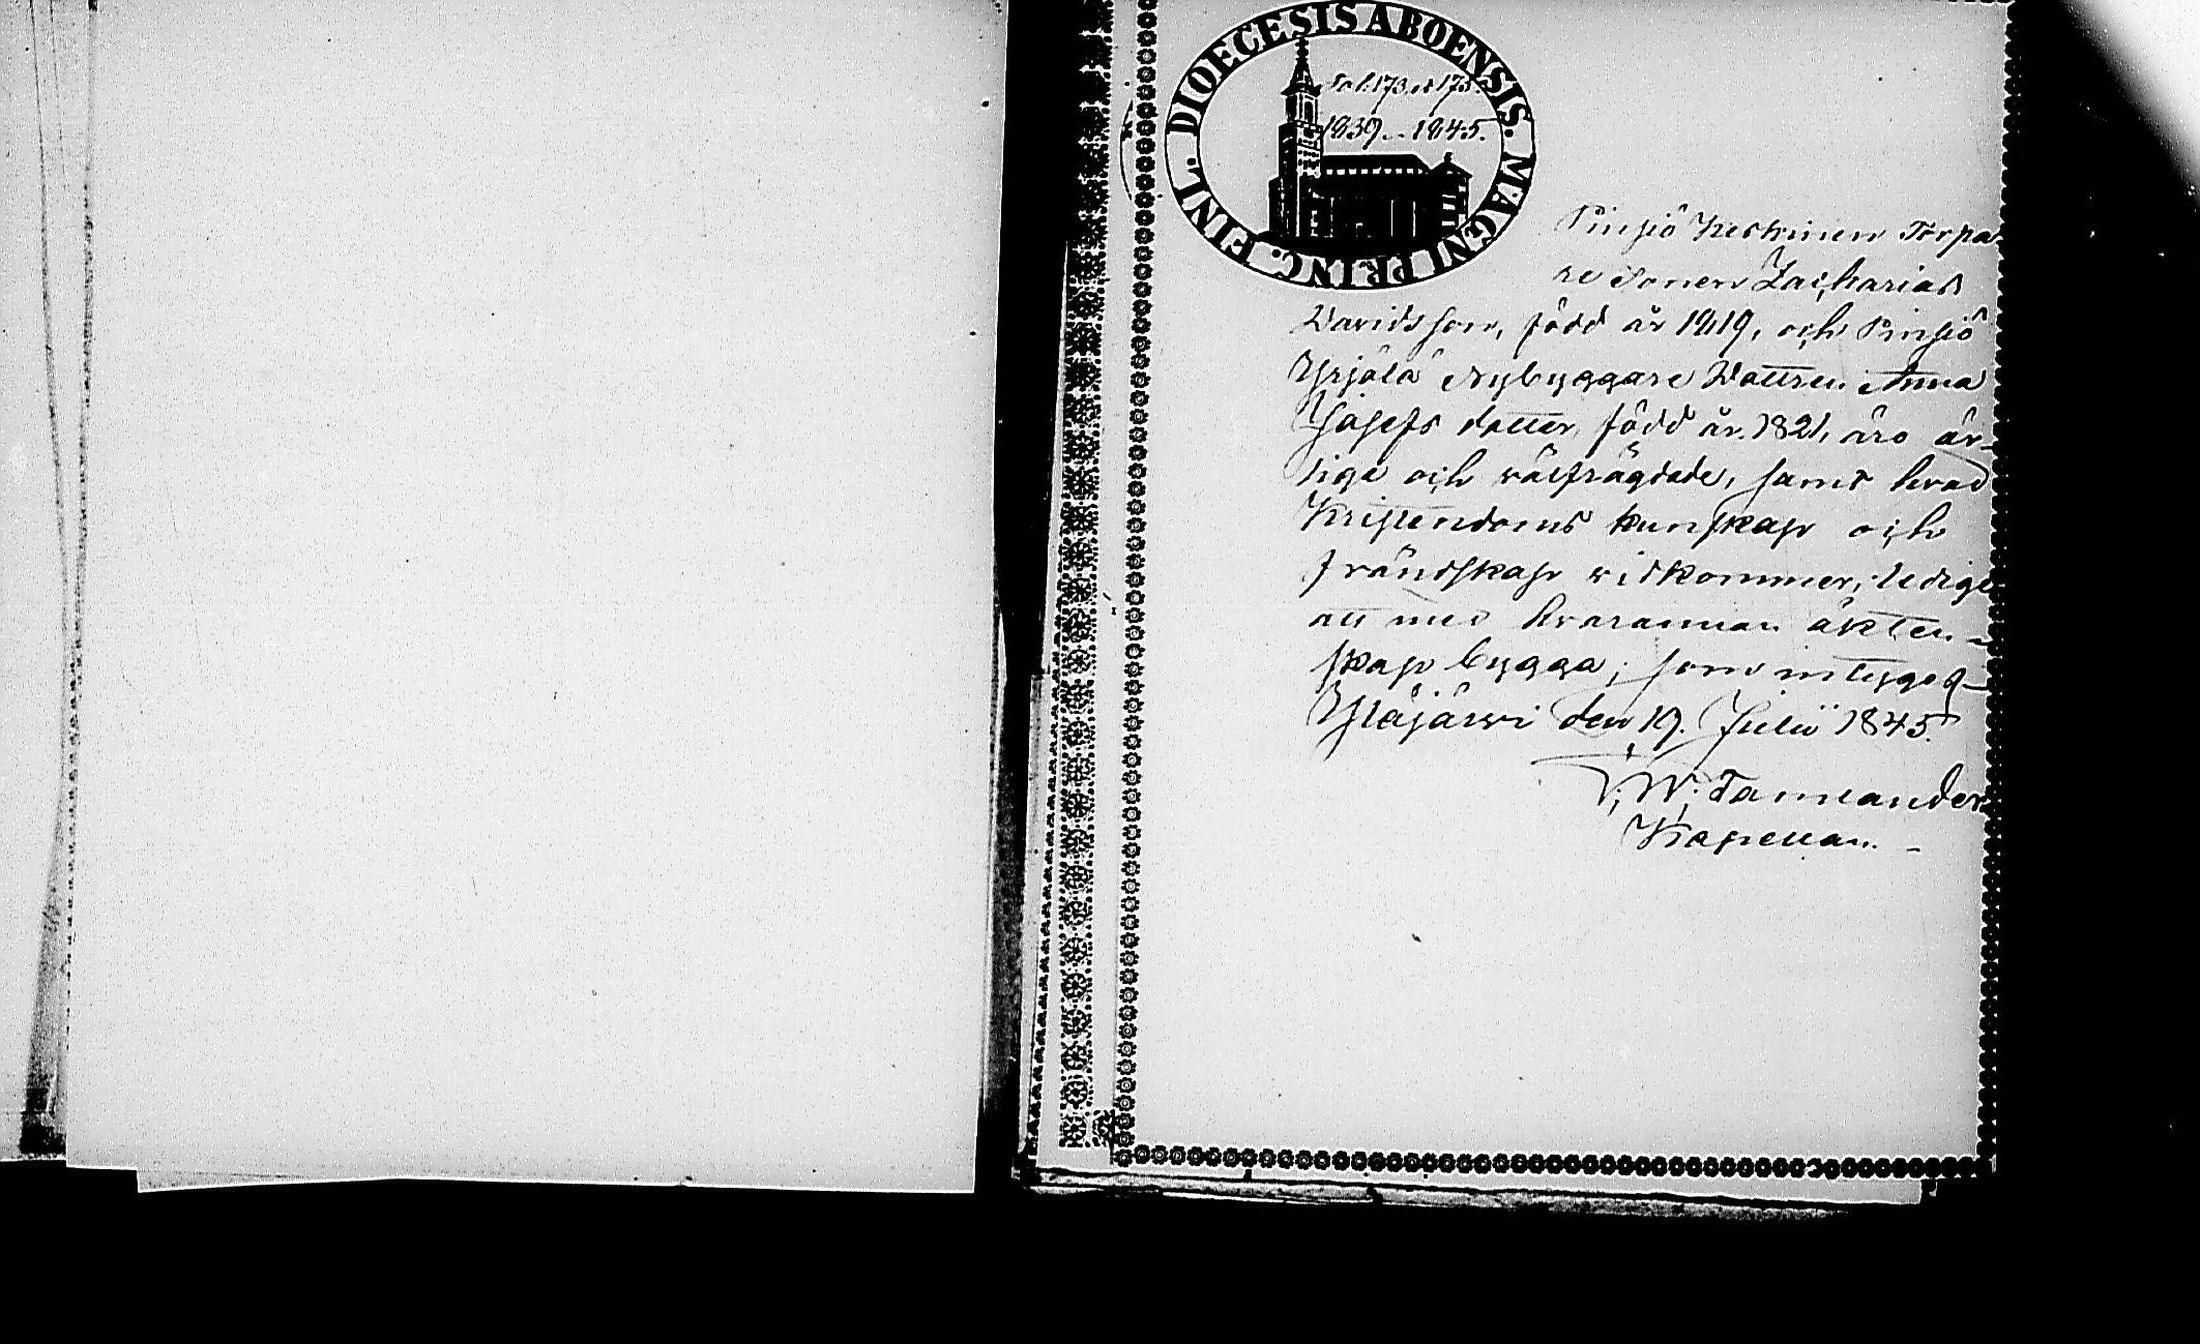 DIOECESIS ABOENSIS. MAGNI PRINC. FINL.
Fol. 173. et 175.
1839.-1845.
Pinsiö Keskinen Torpa-
re Sonen Zacharias
Davidsson, född år 1819, och Pinsiö
Yrjälä Nybyggare Dottren Anna
Josefs dotter, född år 1821, äro är-
liga och välfrägdade, samt hvad
Kristendoms kunskap och
frändskap vidkommer, lediga
att med hvarannan äkten-
skap bygga; som intygas
Ylöjärvi den 19. Julii 1845.
F. W. Tamlander
Kapellan.